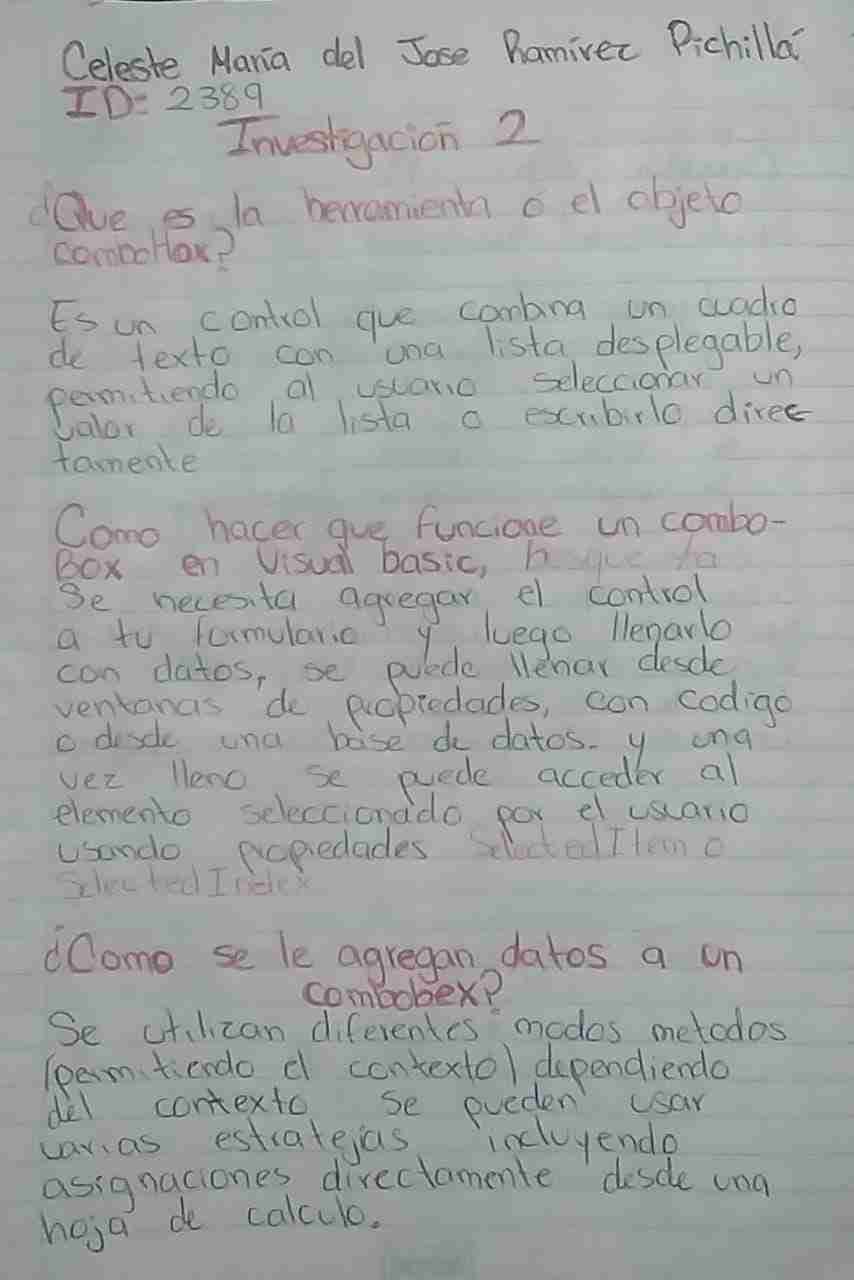 Celeste María del Jose Ramírez Pichillá
ID= 2389
Investigación 2
¿Que es la herramienta o el objeto
comboHox?
Es un control que combina un cuadro
de texto con una lista desplegable,
permitiendo al usuario seleccionar un
valor de la lista o escribirlo direc
tamente
Como hacer que funcione un combo-
Box en Visual basic,
Se necesita agregar el control
a tu formulario y luego llenarlo
con datos, se puede llenar desde
ventanas de propiedades, con codigo
o desde una base de datos. y una
vez lleno se puede acceder al
elemento seleccionado por el usuario
usando propiedades SelectedItem o
SelectedIndex
¿Como se le agregan datos a un
combobex?
Se utilizan diferentes modos metodos
(permitiendo el contexto) dependiendo
del contexto se pueden usar
varias estratejias incluyendo
asignaciones directamente desde una
hoja de calculo.